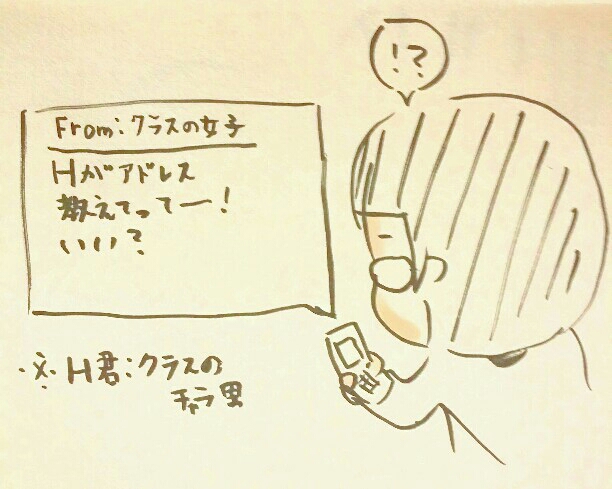 !?
From:クラスの女子
Hがアドレス
教えてってー!
いい?
※H君:クラスの
チャラ男